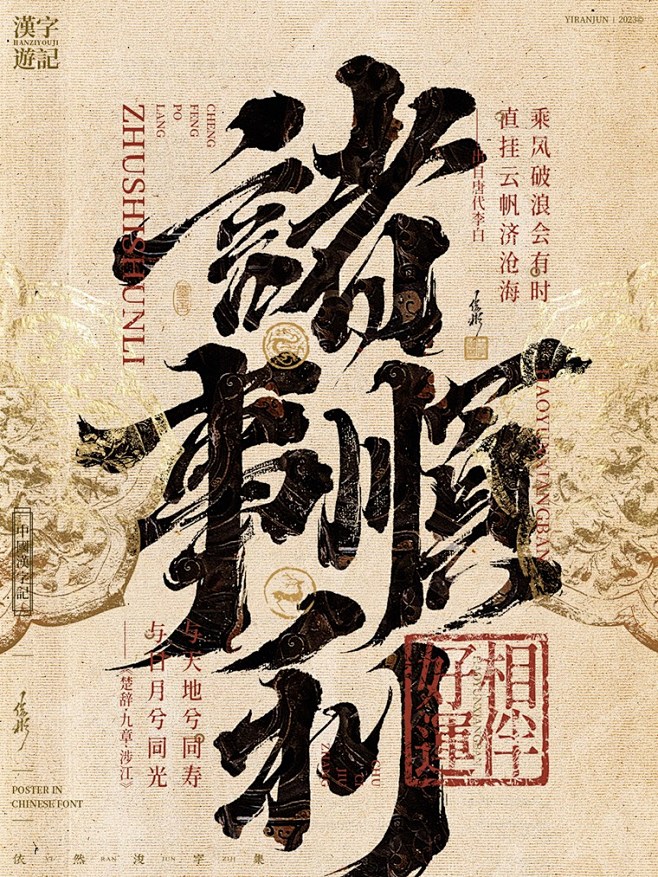 漢字
HANZIYOUJI
遊記
YIRANJUN | 2023©
諸
事順
利
CHENG
FENG
PO
LANG
ZHUSHISHUNLI
乘风破浪会有时
直挂云帆济沧海
——出自唐代李白
HAOYUNXIANGBAN
中國漢字記
与天地兮同寿
与日月兮同光
——《楚辞·九章·涉江》
相伴
好運
CHU
POSTER IN
CHINESE FONT
依 YI 然 RAN 浚 JUN 字 ZIJI 集